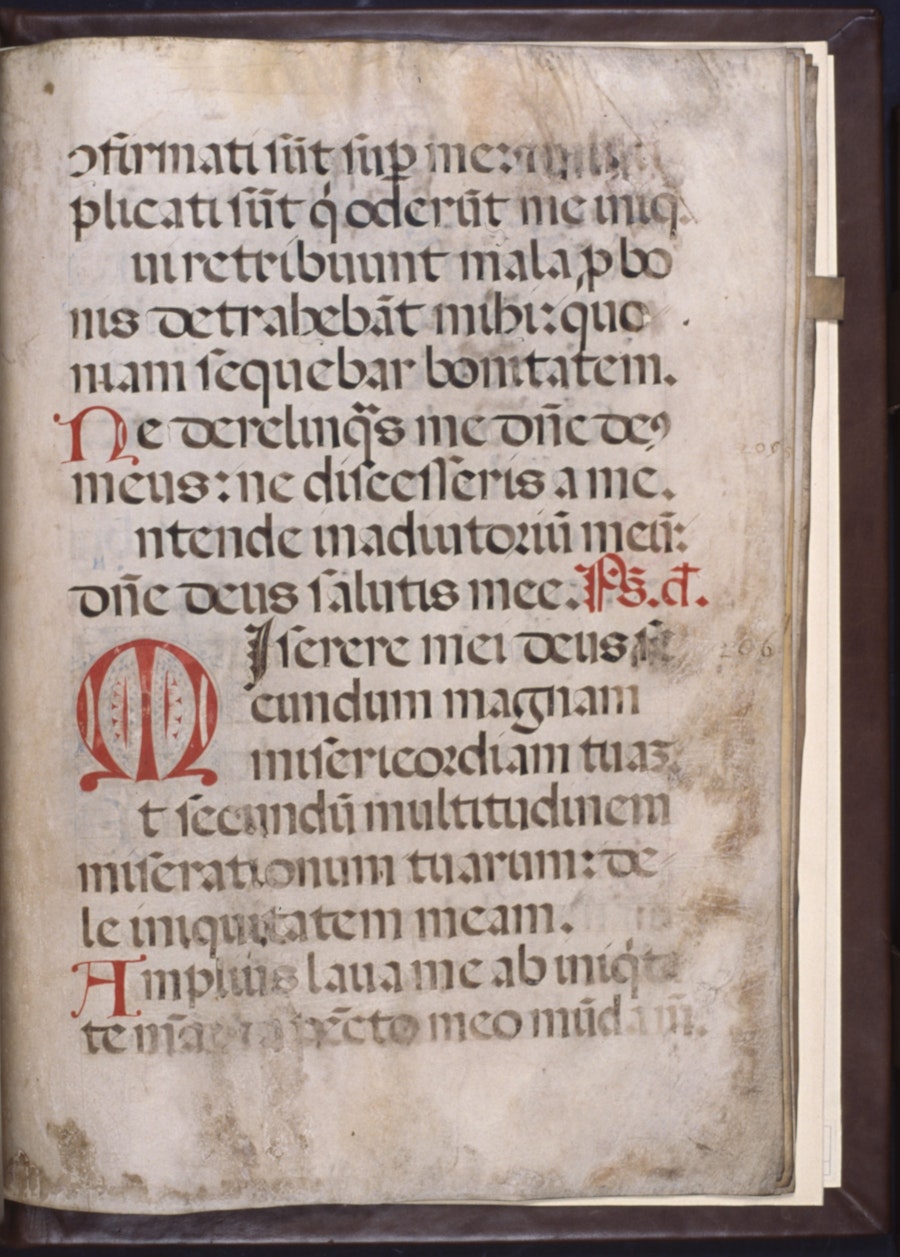 ↄfirmati sūt sup̄ me: multi
plicati sūt q́ oderūt me iniq̄.
ui retribuunt mala ꝓ bo
nis detrahebāt mihi: quo
niam sequebar bonitatem.
Ne derelinq̄s me dn̄e deꝰ
meus: ne discesseris a me.
ntende in adiutoriū meū:
dn̄e deus salutis mee. Ps̄. d̄.
MIserere mei deus se
cundum magnam
misericordiam tuaꝫ
t secundū multitudinem
miserationum tuarum: de
le iniquitatem meam.
Amplius laua me ab iniq́ta
te mea pēcto meo mūda m̄.
206